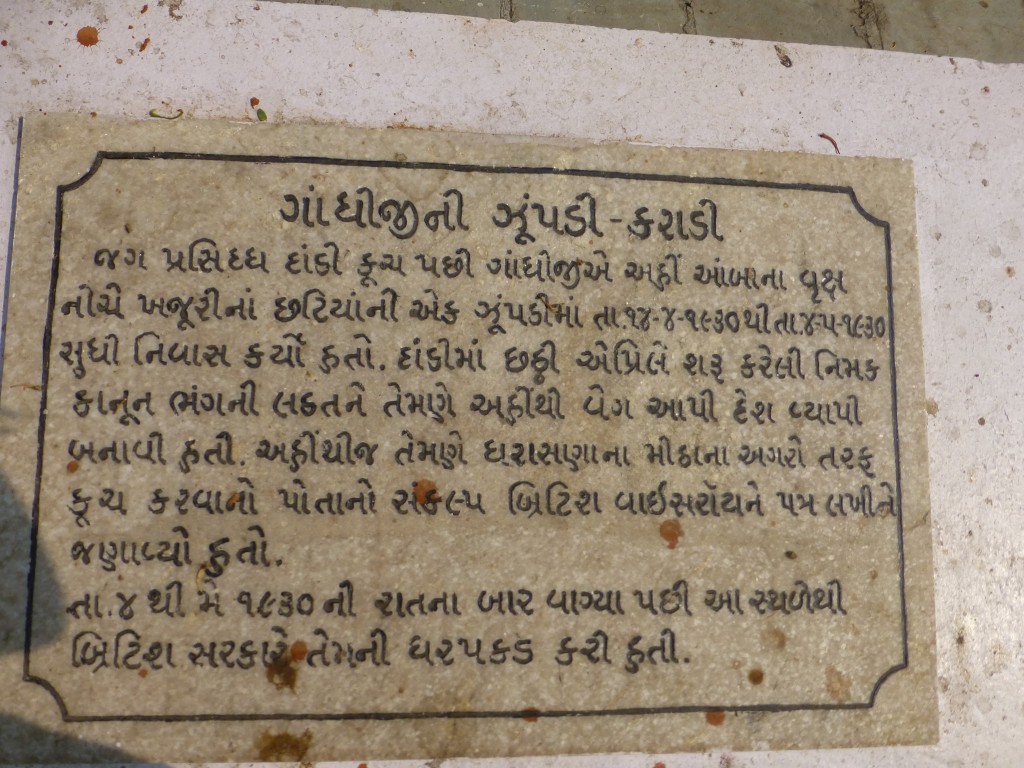 ગાંધીજીની ઝૂંપડી - કરાડી
જગ પ્રસિધ્ધ દાંડી કૂચ પછી ગાંધીજીએ અહીં આંબાના વૃક્ષ
નીચે ખજૂરીનાં છટિયાંની એક ઝૂંપડીમાં તા.૧૪-૪-૧૯૩૦થી તા.૪-૫-૧૯૩૦
સુધી નિવાસ કર્યો હતો. દાંડીમાં છઠ્ઠી એપ્રિલે શરૂ કરેલી નિમક
કાનૂન ભંગની લડતને તેમણે અહીંથી વેગ આપી દેશ વ્યાપી
બનાવી હતી. અહીંથીજ તેમણે ધરાસણાના મીઠાના અગરો તરફ
કૂચ કરવાનો પોતાનો સંકલ્પ બ્રિટિશ વાઇસરૉયને પત્ર લખીને
જણાવ્યો હતો.
તા.૪ થી મે ૧૯૩૦ ની રાતના બાર વાગ્યા પછી આ સ્થળેથી
બ્રિટિશ સરકારે તેમની ધરપકડ કરી હતી.